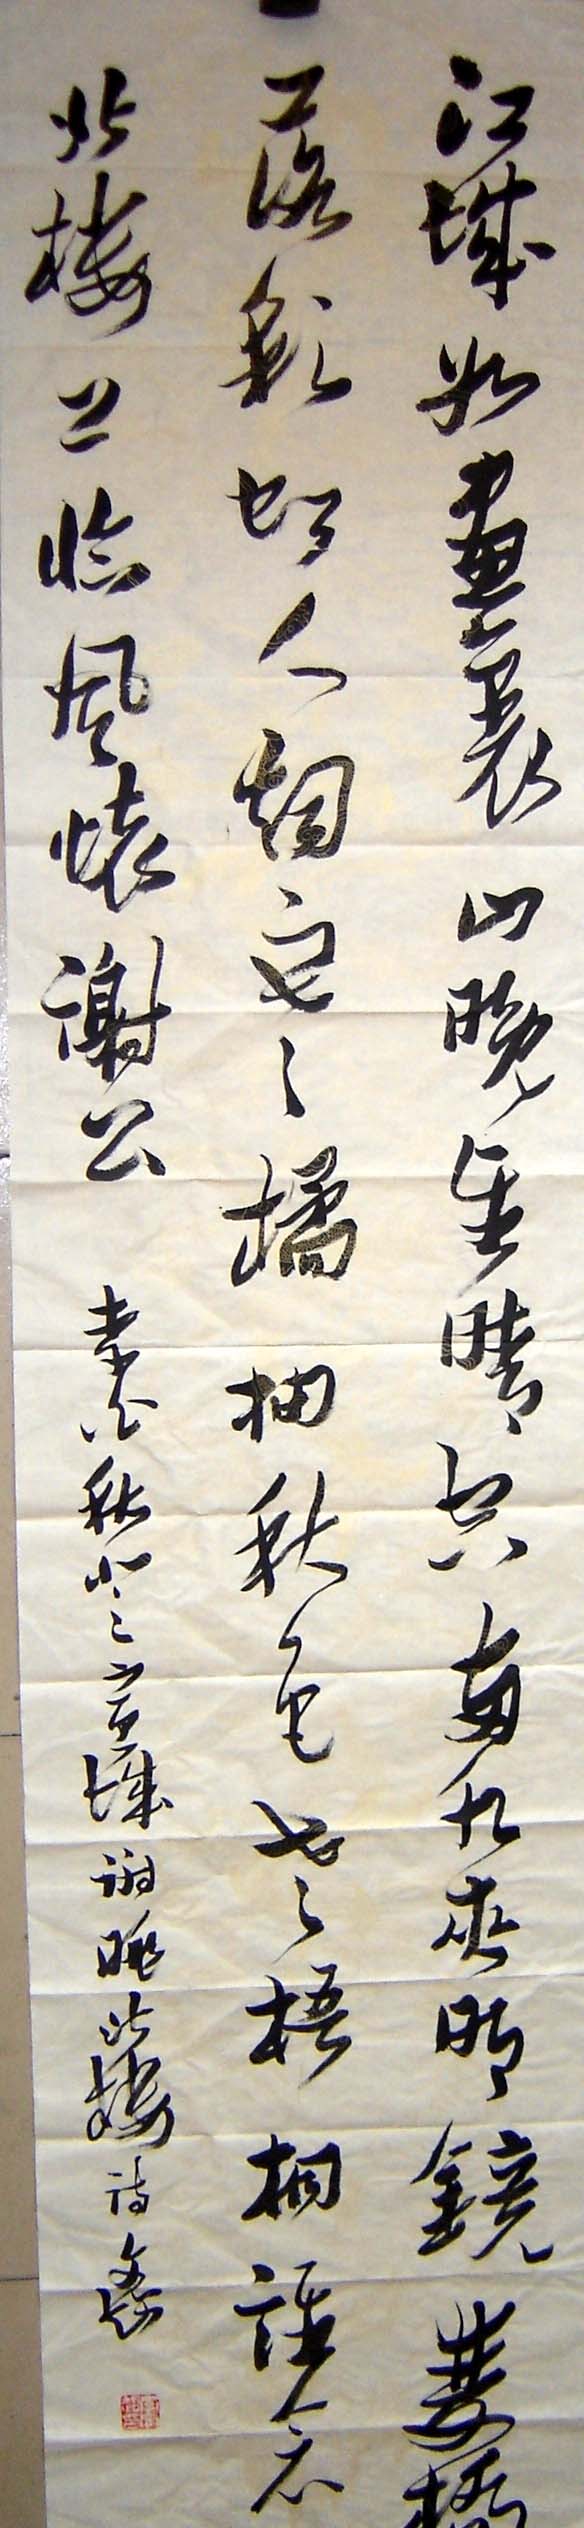 江城如畫裏山晚望晴空兩水夾明鏡雙橋
落彩虹人烟寒橘柚秋色老梧桐誰念
北樓上臨風懷謝公
李白秋登宣城謝朓北樓詩